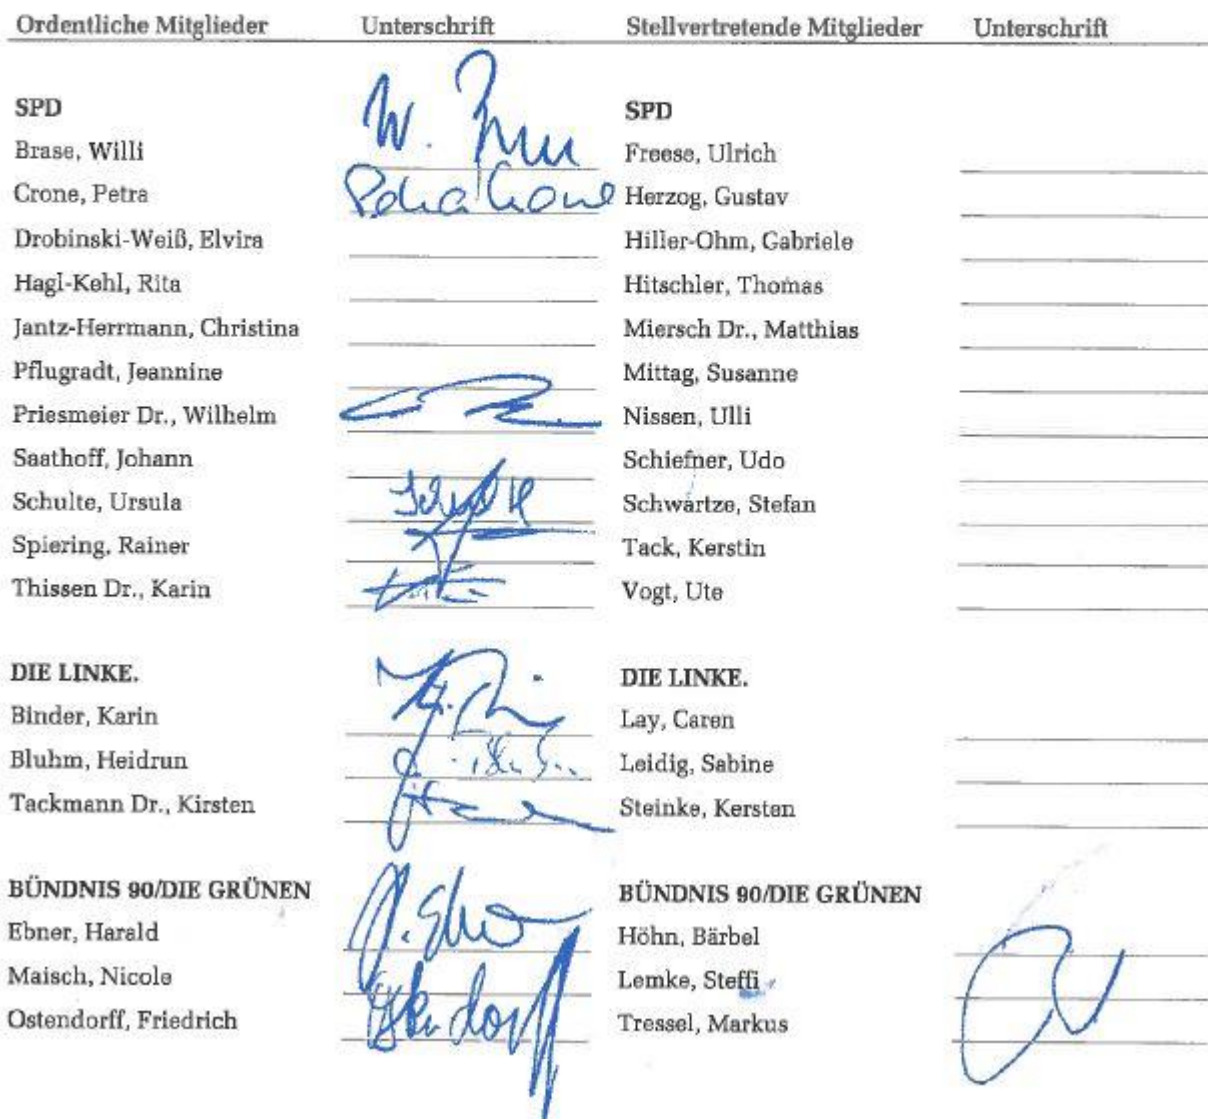 Ordentliche Mitglieder Unterschrift Stellvertretende Mitglieder Unterschrift
SPD SPD
Brase, Willi W. Freese, Ulrich
Crone, Petra Petra Crone Herzog, Gustav
Drobinski-Weiß, Elvira Hiller-Ohm, Gabriele
Hagl-Kehl, Rita Hitschler, Thomas
Jantz-Herrmann, Christina Miersch Dr., Matthias
Pflugradt, Jeannine Mittag, Susanne
Priesmeier Dr., Wilhelm Nissen, Ulli
Saathoff, Johann Schiefner, Udo
Schulte, Ursula Schwartze, Stefan
Spiering, Rainer Tack, Kerstin
Thissen Dr., Karin Vogt, Ute
DIE LINKE. DIE LINKE.
Binder, Karin Lay, Caren
Bluhm, Heidrun Leidig, Sabine
Tackmann Dr., Kirsten Steinke, Kersten
BÜNDNIS 90/DIE GRÜNEN BÜNDNIS 90/DIE GRÜNEN
Ebner, Harald Höhn, Bärbel
Maisch, Nicole Lemke, Steffi
Ostendorff, Friedrich Ostendorff Tressel, Markus